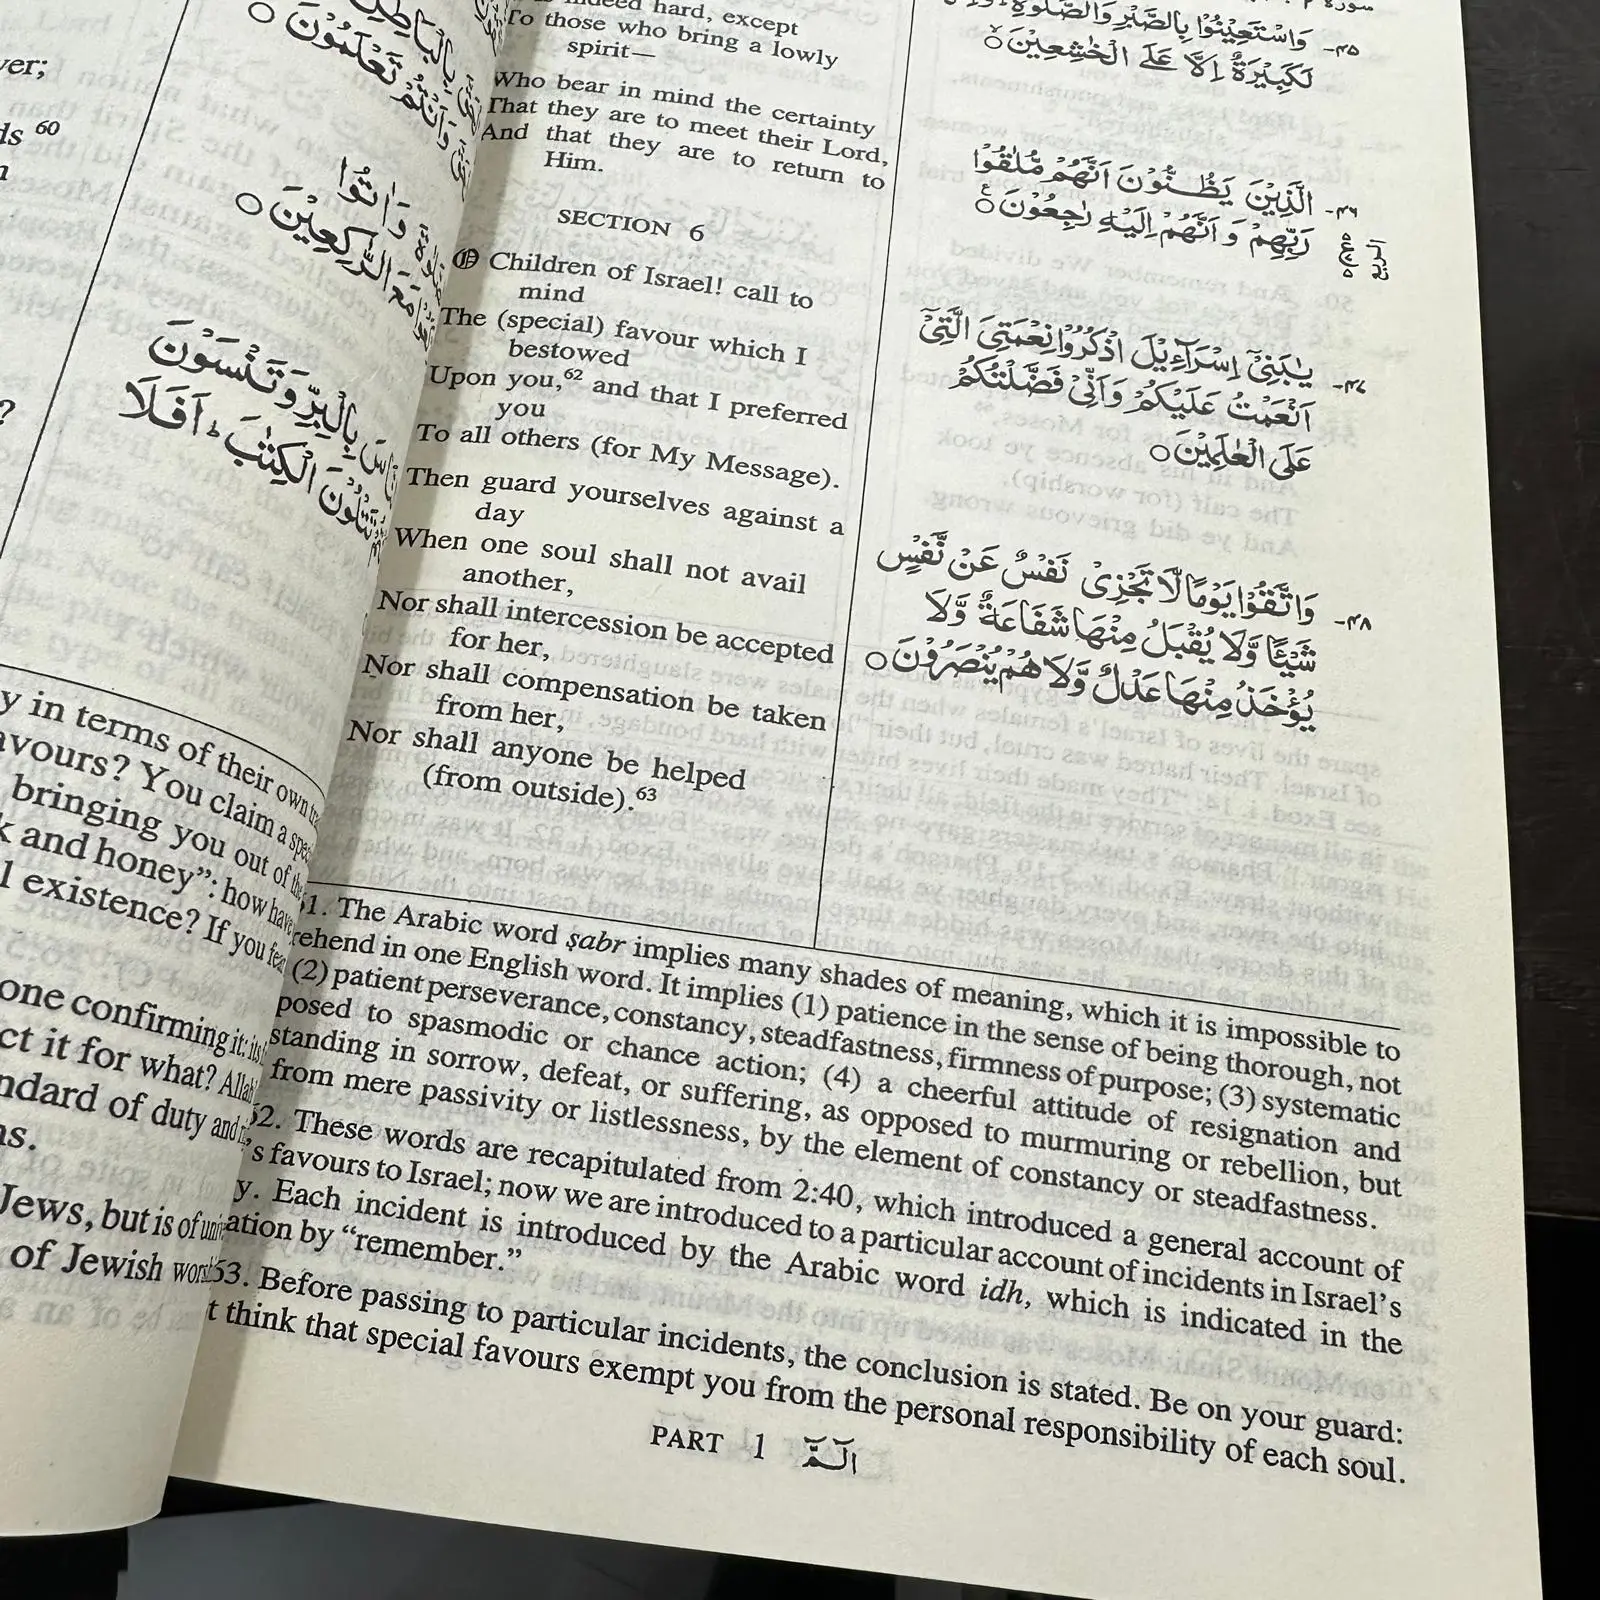 ver;
ds 60
?
بِالْبَاطِلِ
وَاَنْتُمْ تَعْلَمُوْنَ ○
وَاٰتُوا
مَعَ الرّٰكِعِيْنَ ○
بِالْبِرِّ وَتَنْسَوْنَ
تَتْلُوْنَ الْكِتٰبَ ؕ اَفَلَا
y in terms of their own
avours? You claim a
bringing you out of
k and honey”: how have
l existence? If you
one confirming it:
ct it for what? Allah
ndard of duty and
ns.
Jews, but is of
of Jewish
indeed hard, except
To those who bring a lowly
spirit—
Who bear in mind the certainty
That they are to meet their Lord,
And that they are to return to
Him.
SECTION 6
O Children of Israel! call to
mind
The (special) favour which I
bestowed
Upon you,62 and that I preferred
you
To all others (for My Message).
Then guard yourselves against a
day
When one soul shall not avail
another,
Nor shall intercession be accepted
for her,
Nor shall compensation be taken
from her,
Nor shall anyone be helped
(from outside).63
۴۵- وَاسْتَعِيْنُوْا بِالصَّبْرِ وَالصَّلٰوةِ
لَكَبِيْرَةٌ اِلَّا عَلَى الْخٰشِعِيْنَ ○
۴۶- الَّذِيْنَ يَظُنُّوْنَ اَنَّهُمْ مُّلٰقُوْا
رَبِّهِمْ وَ اَنَّهُمْ اِلَيْهِ رٰجِعُوْنَ ○
۴۷- يٰبَنِيْٓ اِسْرَآءِيْلَ اذْكُرُوْا نِعْمَتِيَ الَّتِيْٓ
اَنْعَمْتُ عَلَيْكُمْ وَاَنِّيْ فَضَّلْتُكُمْ
عَلَى الْعٰلَمِيْنَ ○
۴۸- وَاتَّقُوْا يَوْمًا لَّا تَجْزِيْ نَفْسٌ عَنْ نَّفْسٍ
شَيْـًٔا وَّلَا يُقْبَلُ مِنْهَا شَفَاعَةٌ وَّلَا
يُؤْخَذُ مِنْهَا عَدْلٌ وَّلَا هُمْ يُنْصَرُوْنَ ○
61. The Arabic word ṣabr implies many shades of meaning, which it is impossible to
rehend in one English word. It implies (1) patience in the sense of being thorough, not
(2) patient perseverance, constancy, steadfastness, firmness of purpose; (3) systematic
posed to spasmodic or chance action; (4) a cheerful attitude of resignation and
standing in sorrow, defeat, or suffering, as opposed to murmuring or rebellion, but
from mere passivity or listlessness, by the element of constancy or steadfastness.
62. These words are recapitulated from 2:40, which introduced a general account of
's favours to Israel; now we are introduced to a particular account of incidents in Israel's
y. Each incident is introduced by the Arabic word idh, which is indicated in the
ation by “remember.”
63. Before passing to particular incidents, the conclusion is stated. Be on your guard:
t think that special favours exempt you from the personal responsibility of each soul.
PART 1 الٓمّٓ